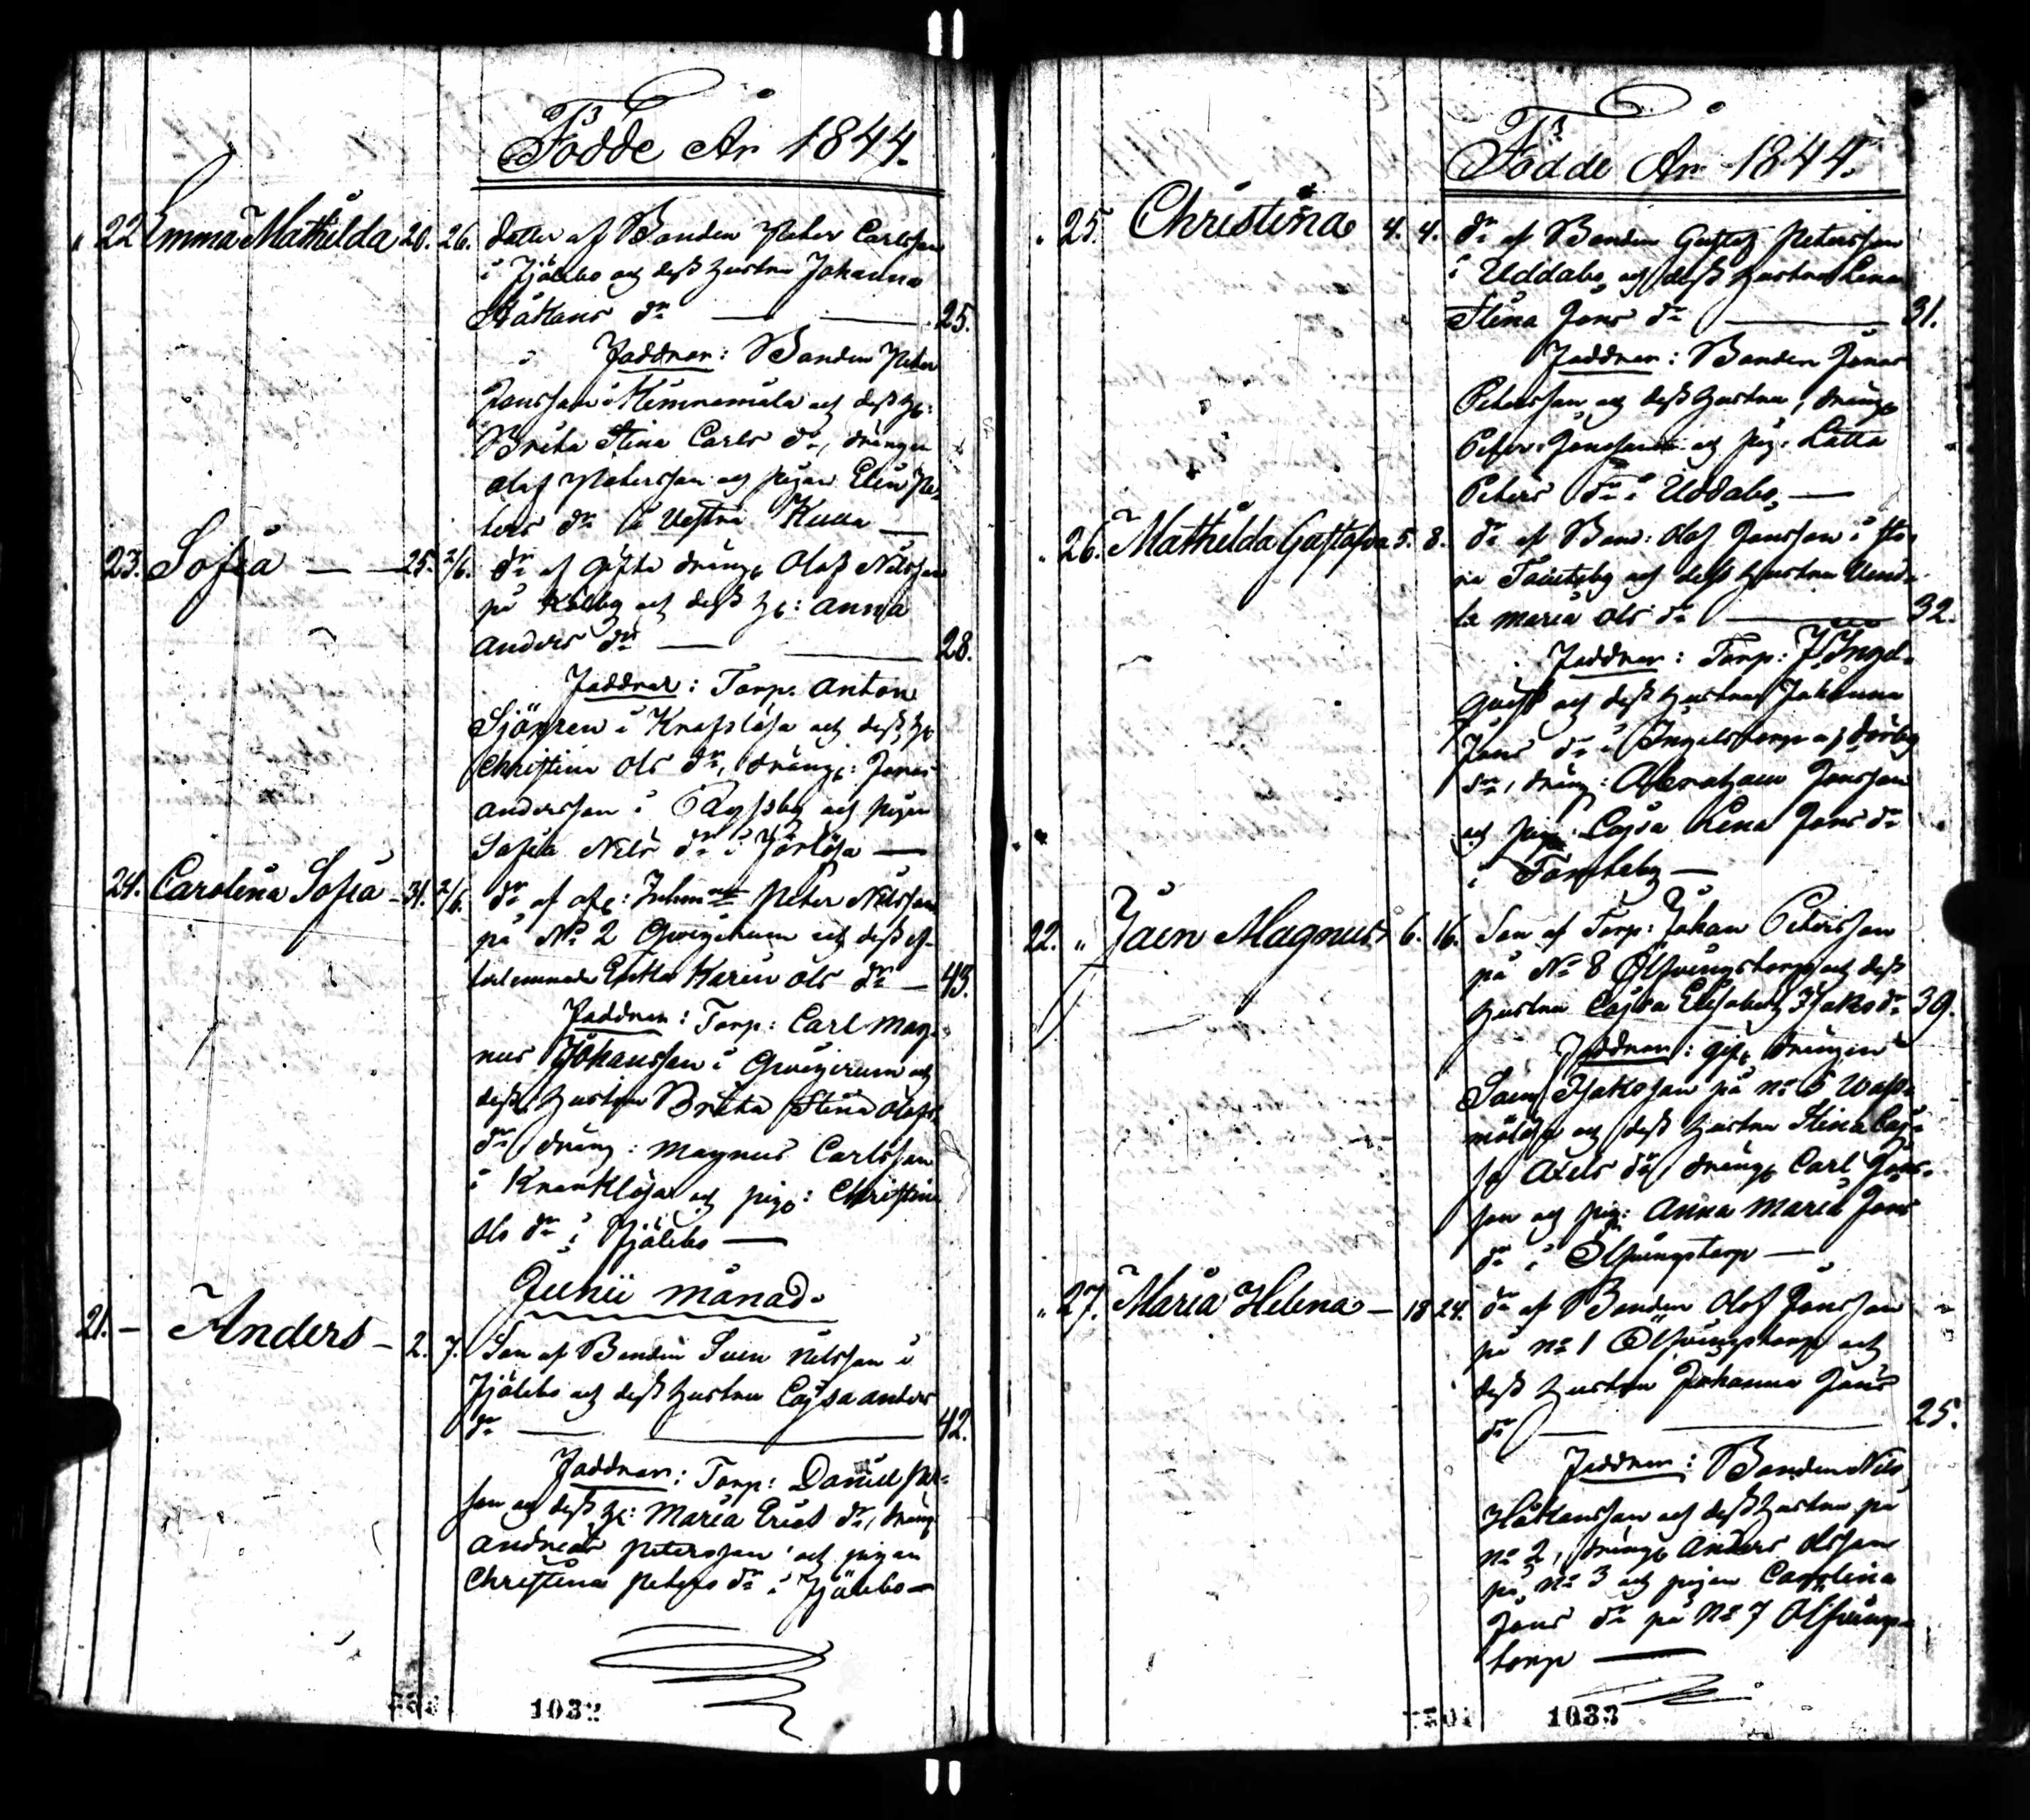 Födde År 1844.
22 Emma Mathilda 20. 26. dotter af Bonden Peter Carlsson
i Hjälebo och dess hustru Johanna
Håkans dr 25.
Faddrar: Bonden Peter
Jonsson i Hemmemåla och dess h:
Brita Stina Carls dr, drängen
Olof Petersson och pigan Elin Pe-
ters dr i Vestra
23. Sofia 25. 2/6. dr af gifta dräng Olof Nilsson
på Källby och dess h: Anna
Anders dr 28.
Faddrar: Torp. Anton
Sjögren i Knapslösa och dess h
Christin Ols dr, dräng: Jonas
Andersson i och pigan
Sofia Nils dr i Hjorlösa
24. Carolina Sofia 31. 2/6. dr af afl: Peter Nilsson
på No 2 och dess ef-
terlemnade Enka Karin Ols dr 43.
Faddrar: Torp: Carl Mag-
nus Johansson i och
dess hustru Brita Stina Olofs
dr dräng: Magnus Carlsson
i och pig: Christina
Ols dr i Hjälebo
Junii månad.
21. Anders 2. 7. Son af Bonden Sven Nilsson i
Hjälebo och dess hustru Cajsa Anders
dr 42.
Faddrar: Torp: Daniel Pet-
son och dess h: Maria Erics dr, dräng
Andreas Petersson och pigan
Christina Peters dr i Hjälebo
1032
Födde År 1844.
25. Christina 4. 4. dr af Bonden Gustaf Petersson
i Uddabo och dess hustru Lena
Stina Jons dr 31.
Faddrar: Bonden Jonas
Petersson och dess hustru, dräng
Peter Jonsson och pig: Lotta
Peters dr i Uddabo
26. Mathilda Gustafva 5. 8. dr af Bond: Olof Jonsson i Sto-
ra och dess hustru Vend-
la Maria Ols dr 32.
Faddrar: Torp: J Ingel-
quist och dess hustru Johanna
Jons dr i Ingelstorp och Dörby
sn, dräng: Abraham Jonsson
och pig: Cajsa Lena Jons dr
i
22. Jaen Magnus 6. 16. Son af Torp: Johan Petersson
på No 8 Ölfvingstorp och dess
hustru Cajsa Elisabeth Isaks dr 39.
Faddrar: gift drängen
Isaksson på No 5
och dess hustru Stina Caj-
sa Axels dr dräng Carl Jons-
son och pig: Anna Maria Jons
dr i Ölfvingstorp
27. Maria Helena 18 24. dr af Bonden Olof Jonsson
på No 1 Ölfvingstorp och
dess hustru Johanna Jons
dr 25.
Faddrar: Bonden Nils
Håkansson och dess hustru på
No 2, dräng Anders Olsson
på No 3 och pigan Carolina
Jons dr på No 7 Ölfvings-
torp
1033